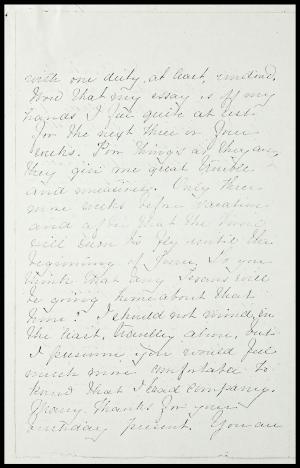 with one duty, at least, ended.
Now that my essay is off my
hands I feel quite at rest
for the next three or four
weeks. For things as they are,
they give me great trouble
and uneasiness. Only three
more weeks before vacation
and after that the time
will soon to fly until the
beginning of June. Do you
think that any Texans will
be going home about that
time? I should not mind, in
the least, travelling alone, but
I presume you would feel
much more comfortable to
know that I had company.
Many thanks for your
birthday present. You are